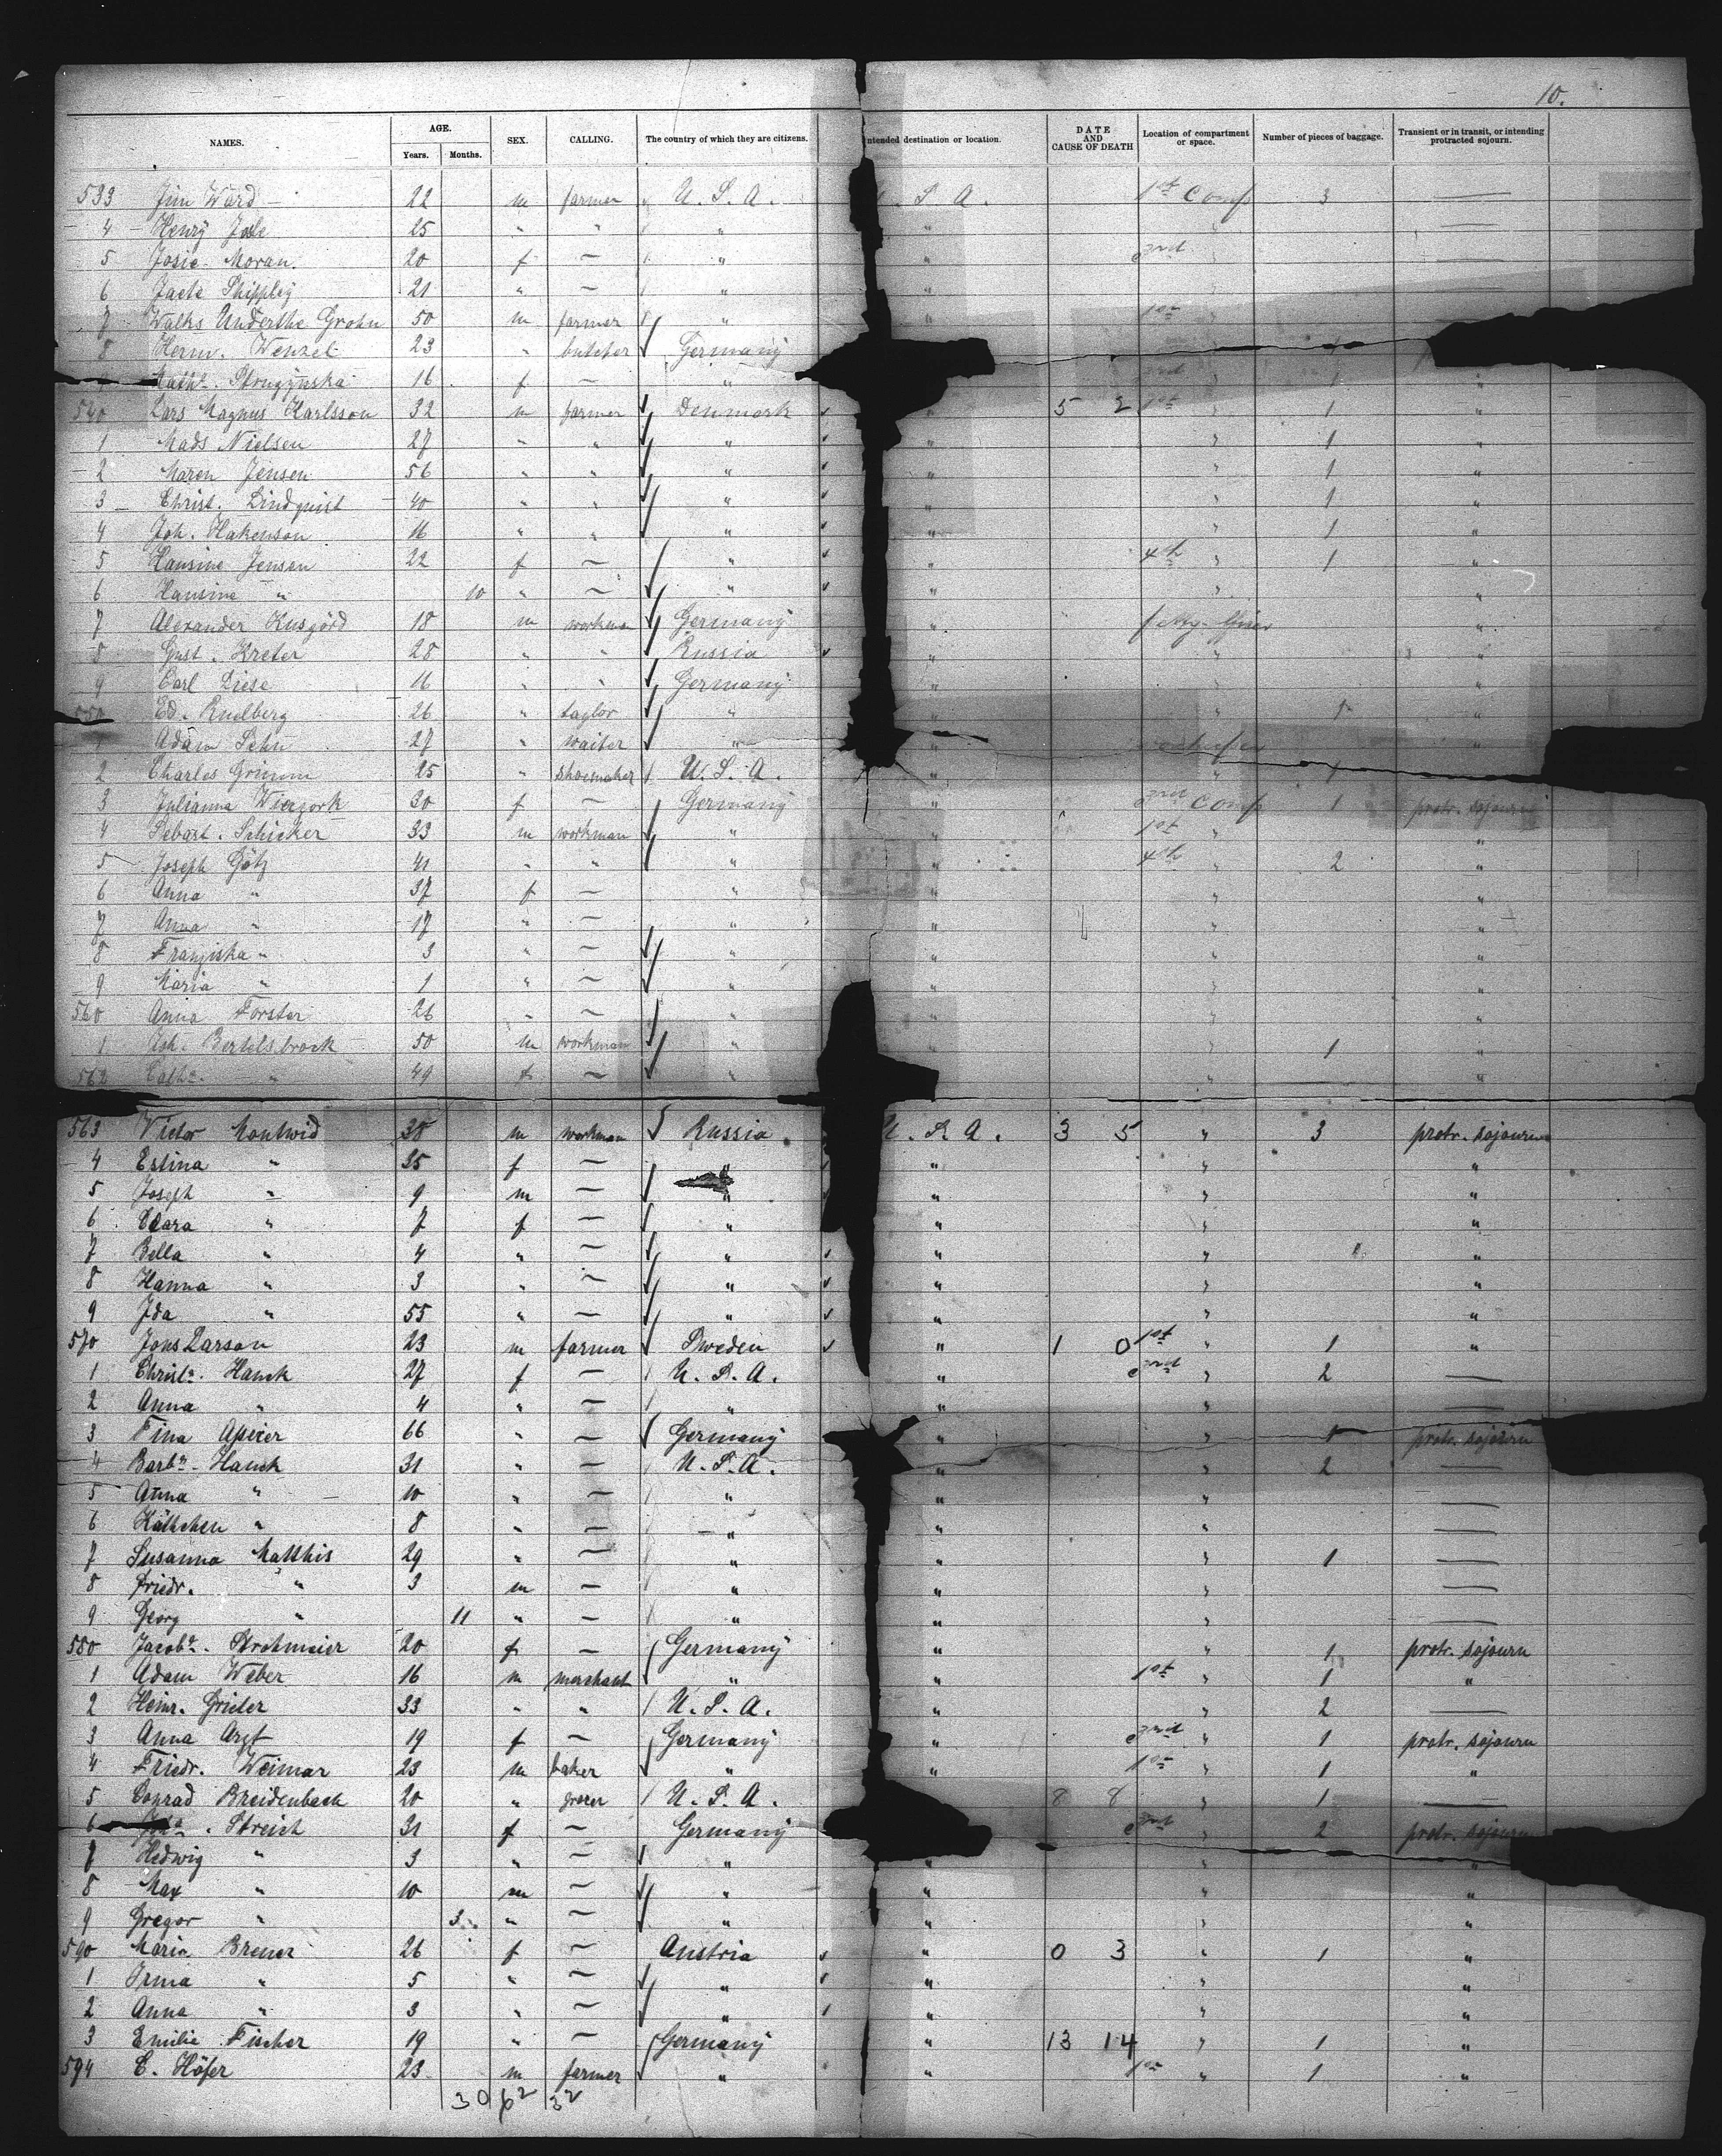 10.
NAMES. AGE. SEX. CALLING. The country of which they are citizens. ntended destination or location. DATE AND CAUSE OF DEATH Location of compartment or space. Number of pieces of baggage. Transient or in transit, or intending protracted sojourn.
Years. Months.
533 Jim Ward 22 m farmer U. S. A. . S. A. 1st Comp 3 —
4 Henry 25 " " " " " —
5 Josie Moran. 20 f — " " 3rd " —
6 Jack Shippley 21 " — " " " —
7 Walks Underthe Grohn 50 m farmer " " 1st "
8 Herm. Wenzel 23 " butcher Germany
Math. Strugynska 16 f — " 3rd " 1 "
540 Lars Magnus Karlsson 32 m farmer Denmark " 5 2 1st " 1 "
1 Mads Nielsen 27 " " " " " 1 "
2 Maren Jensen 56 " " " " " 1 "
3 Christ. Lindquist 40 " " " " " 1 "
4 Joh. Hakenson 16 " " " " " 1 "
5 Hansine Jensen 22 f — " " 4th " 1 "
6 Hansine " 10 " — " " " "
7 Alexander Kusgörd 18 m workman Germany " "
8 Gust. Kreter 28 " " Russia " " "
9 Carl Ziese 16 " " Germany " " "
550 Ed. Rudberg 26 " taylor " " " 1 "
1 Adam Sehn 27 " waiter " " "
2 Charles Grimm 25 " shoemaker U. S. A. " " 1
3 Julianna Wiezork 30 f — Germany " 3rd Comp 1 protr. sojourn
4 Sebast. Schicker 33 m workman " " 1st " "
5 Joseph Götz 41 " " " " 4th " 2 "
6 Anna " 37 f — " " " "
7 Anna " 17 " — " " " "
8 Franziska " 3 " — " " " "
9 Maria " 1 " — " " " "
560 Anna Forster 26 " — " " " "
1 Joh. Bertelsbrock 50 m workman " " 1 "
562 Cath. " 49 f — " " "
563 Victor Montwid 38 m workman Russia U. S. A. 3 5 " 3 protr. sojourn
4 Estina " 35 f — " " " "
5 Joseph " 9 m — " " " "
6 Clara " 7 f — " " " "
7 Bella " 4 " — " " " "
8 Hanna " 3 " — " " " "
9 Ida " 55 " — " " " "
570 Jons Larson 23 m farmer Sweden " 1 0 1st " 1 "
1 Christ. Hauck 27 f — U. S. A. " 3rd " 2 —
2 Anna " 4 " — " " " —
3 Tina 66 " — Germany " " 1 protr. sojourn
4 Barb. Hauck 31 " — U. S. A. " " 2 —
5 Anna " 10 " — " " " —
6 Käthchen " 8 " — " " " —
7 Susanna Matthis 29 " — " " " 1 —
8 Friedr. " 3 m — " " " —
9 Georg " 11 " — " " " —
580 Jacob. Strohmeier 20 f — Germany " " 1 protr. sojourn
1 Adam Weber 16 m merchant " " 1st " 1 "
2 Heinr. Grieler 33 " " U. S. A. " " 2 —
3 Anna Arzt 19 f — Germany " 3rd " 1 protr. sojourn
4 Friedr. Weimar 23 m baker " " 1st " 1 "
5 Conrad Breidenbach 20 " grocer U. S. A. 8 8 " 1 —
6 Streich 31 f — Germany 3rd " 2 protr. sojourn
7 Hedwig " 3 " — " " " "
8 Max " 10 m — " " " "
9 Gregor " 3 " — " " " "
590 Maria Brener 26 f — Austria " 0 3 " 1 "
1 Irma " 5 " — " " " "
2 Anna " 3 " — " " " "
3 Emilie Fischer 19 " — Germany " 13 14 " 1 "
594 C. Höfer 23 m farmer " " 1st " 1 "
30 62 32